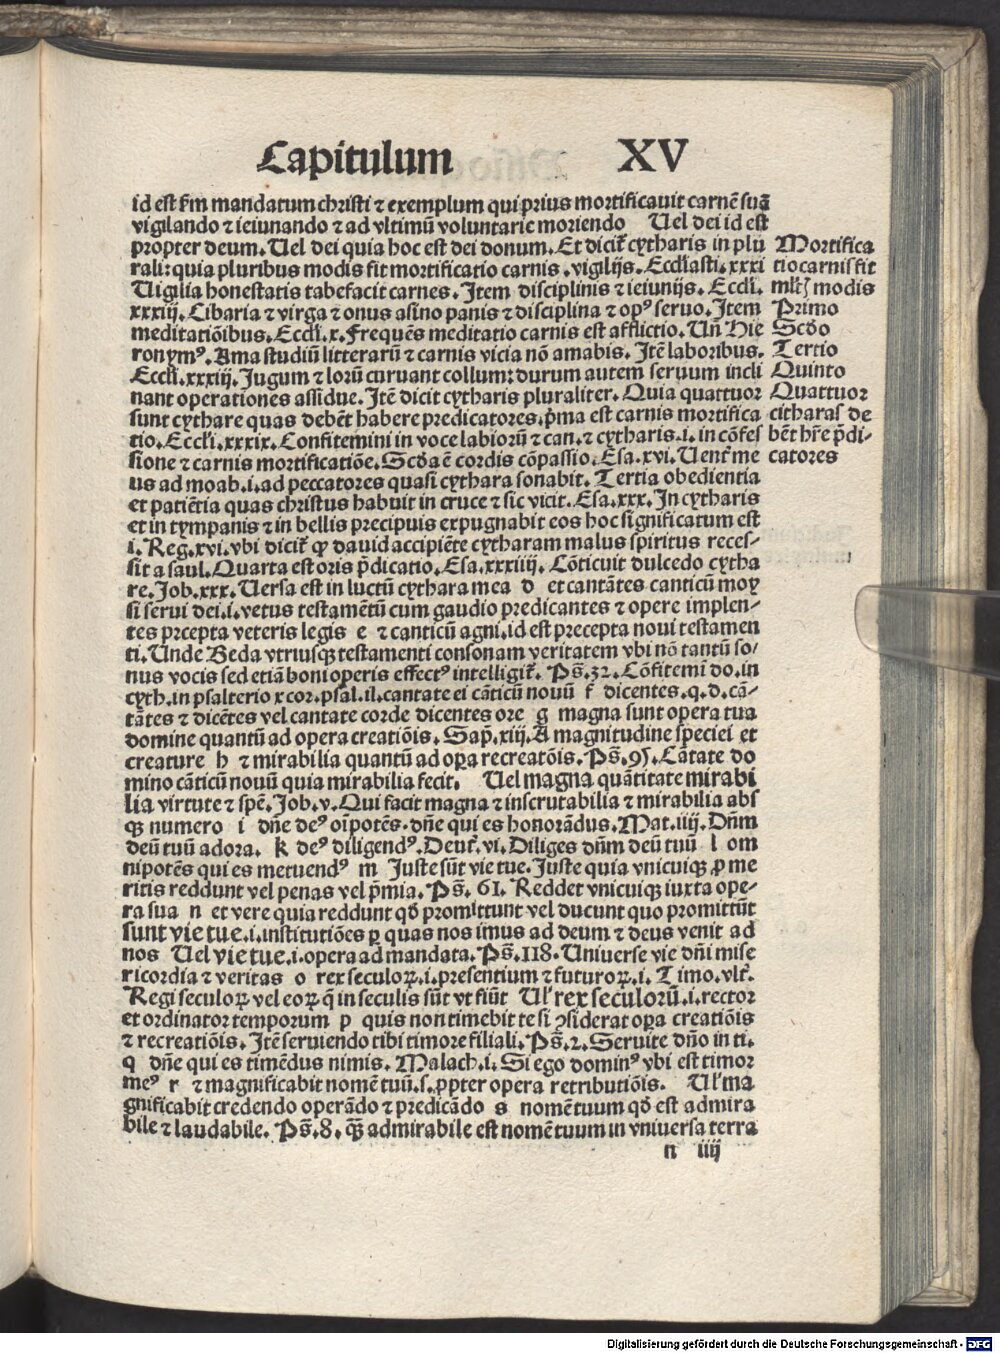 Capitulum XV
id est ẜm mandatum christi ⁊ exemplum qui prius mortificauit carnē suā
vigilando ⁊ ieiunando ⁊ ad vltimū voluntarie moriendo Uel dei id est
propter deum. Uel dei quia hoc est dei donum. Et dicit᷑ cytharis in plu
rali: quia pluribus modis fit mortificatio carnis. vigilijs. Eccl̄iasti. xxxi
Uigilia honestatis tabefacit carnes. Item disciplinis ⁊ ieiunijs. Eccl̄i.
xxxiij. Cibaria ⁊ virga ⁊ onus asino panis ⁊ disciplina ⁊ opꝰ seruo. Item
meditatiōibus. Eccl̄i. x. Frequēs meditatio carnis est afflictio. Un̄ Hie
ronymꝰ. Ama studiū litterarū ⁊ carnis vicia nō amabis. Itē laboribus.
Eccl̄i. xxxiij. Jugum ⁊ lorū curuant collum: durum autem seruum incli
nant operationes assidue. Itē dicit cytharis pluraliter. Quia quattuor
sunt cythare quas debēt habere predicatores. p̄ma est carnis mortifica
tio. Eccl̄i. xxxix. Confitemini in voce labiorū ⁊ can. ⁊ cytharis .i. in cōfes
sione ⁊ carnis mortificatiōe. Scd̄a ē cordis cōpassio. Esa. xvi. Uent᷑ me
us ad moab .i. ad peccatores quasi cythara sonabit. Tertia obedientia
et patiētia quas christus habuit in cruce ⁊ sic vicit. Esa. xxx. In cytharis
et in tympanis ⁊ in bellis precipuis expugnabit eos hoc significatum est
i. Reg. xvi. vbi dicit᷑ ꝙ dauid accipiēte cytharam malus spiritus reces-
sit a saul. Quarta est oris p̄dicatio. Esa. xxxiiij. Cōticuit dulcedo cytha
re. Job. xxx. Uersa est in luctū cythara mea d et cantātes canticū moy
si serui dei .i. vetus testamētū cum gaudio predicantes ⁊ opere implen-
tes precepta veteris legis e ⁊ canticū agni. id est precepta noui testamen
ti. Unde Beda vtriusqꝫ testamenti consonam veritatem vbi nō tantū so-
nus vocis sed etiā boni operis effectꝰ intelligit᷑. Ps̄. 32. Cōfitemini do. in
cyth. in psalterio x cor. psal. il. cantate ei cāticū nouū f dicentes. q. d. cā-
tātes ⁊ dicētes vel cantate corde dicentes ore g magna sunt opera tua
domine quantū ad opera creatiōis. Sap̄. xiij. A magnitudine speciei et
creature h ⁊ mirabilia quantū ad oꝑa recreatōis. Ps̄. 95. Cātate do
mino cāticū nouū quia mirabilia fecit. Uel magna quātitate mirabi
lia virtute ⁊ spē. Job. v. Qui facit magna ⁊ inscrutabilia ⁊ mirabilia abs
qꝫ numero i dn̄e deꝰ oīpotēs. dn̄e qui es honorādus. Mat. iiij. Dn̄m
deū tuū adora. k deꝰ diligendꝰ. Deut᷑. vi. Diliges dn̄m deū tuū l om
nipotēs qui es metuendꝰ m Juste sūt vie tue. Juste quia vnicuiqꝫ ꝓ me
ritis reddunt vel penas vel p̄mia. Ps̄. 61. Reddet vnicuiqꝫ iuxta ope-
ra sua n et vere quia reddunt qd̄ promittunt vel ducunt quo promittūt
sunt vie tue .i. institutiōes ꝑ quas nos imus ad deum ⁊ deus venit ad
nos Uel vie tue .i. opera ad mandata. Ps̄. 118. Uniuerse vie dn̄i mise
ricordia ⁊ veritas o rex seculoꝝ .i. presentium ⁊ futuroꝝ. i. Timo. vlt᷑.
Regi seculoꝝ vel eoꝝ q̄ in seculis sūt vt fiūt Ul᷑ rex seculorū .i. rector
et ordinator temporum p quis non timebit te si ꝯsiderat oꝑa creatiōis
⁊ recreatiōis. Itē seruiendo tibi timore filiali. Ps̄. 2. Seruite dn̄o in ti.
q dn̄e qui es timēdus nimis. Malach. i. Si ego dominꝰ vbi est timor
meꝰ r ⁊ magnificabit nomē tuū .s. ꝓpter opera retributiōis. Ul᷑ ma
gnificabit credendo operādo ⁊ predicādo s nomē tuum qd̄ est admira
bile ⁊ laudabile. Ps̄. 8. qꝫ̄ admirabile est nomē tuum in vniuersa terra
n iiij
Mortifica
tio carnis fit
mlt̄ꝭ modis
Primo
Scd̄o
Tertio
Quinto
Quattuor
citharas de
bēt hr̄e p̄di-
catores
Digitalisierung gefördert durch die Deutsche Forschungsgemeinschaft - DFG